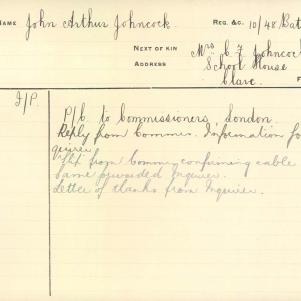 NAME John Arthur Johncock. REG. &C. 10/48 Bat
NEXT OF KIN Mrs C. J. Johncoc
ADDRESS School House
Clare. F
I/P. P/C. to Commissioners, London.
Reply from Commrs. Information fo
quirer
from Commrs confirming cable
Same forwarded Inquirer.
Letter of thanks from Inquirer.